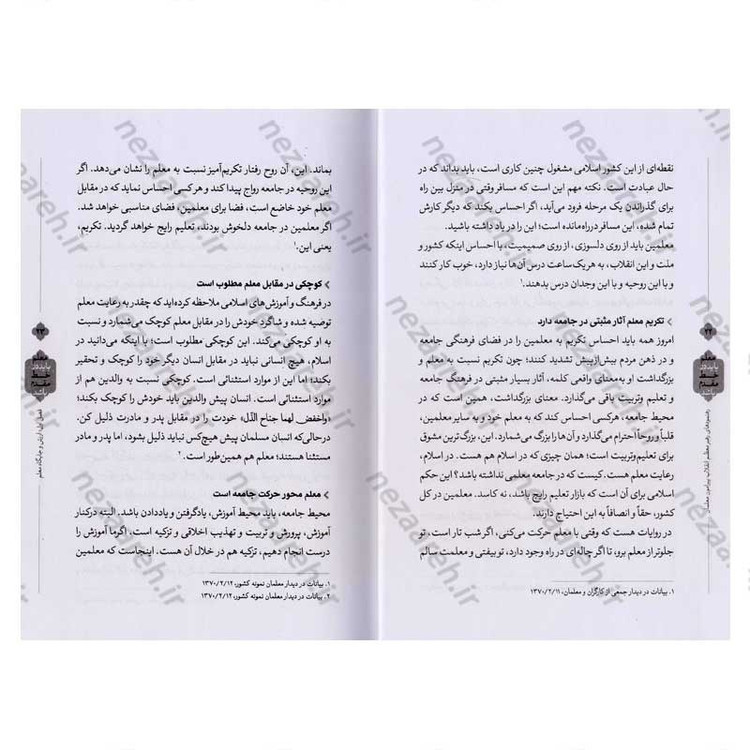 نقطه‌ای از این کشور اسلامی مشغول چنین کاری است، باید بداند که در
حال عبادت است. نکته مهم این است که مسافر وقتی در منزل بین راه
برای گذراندن یک مرحله فرود می‌آید، اگر احساس بکند که دیگر کارش
تمام شده، این مسافر در راه مانده است؛ این را در یاد داشته باشید.
معلمین باید از روی دلسوزی، از روی صمیمیت، با احساس اینکه کشور و
ملت و این انقلاب، به هر یک ساعت درس آن‌ها نیاز دارد، خوب کار کنند
و با این روحیه و با این وجدان درس بدهند.۱
تکریم معلم آثار مثبتی در جامعه دارد
امروز همه باید احساس تکریم به معلمین را در فضای فرهنگی جامعه
و در ذهن مردم بیش‌ازپیش تشدید کنند؛ چون تکریم نسبت به معلم و
بزرگداشت او به‌معنای واقعی کلمه، آثار بسیار مثبتی در فرهنگ جامعه
و تعلیم وتربیت باقی می‌گذارد. معنای بزرگداشت، همین است که در
محیط جامعه، هرکسی احساس کند که به معلم خود و به سایر معلمین،
قلباً و روحاً احترام می‌گذارد و آن‌ها را بزرگ می‌شمارد. این، بزرگ‌ترین مشوق
برای تعلیم‌وتربیت است؛ همان چیزی که در اسلام هم هست. در اسلام،
رعایت معلم هست. کیست که در جامعه معلمی نداشته باشد؟ این حکم
اسلامی برای آن است که بازار تعلیم رایج باشد، نه کاسد. معلمین در کل
کشور، حقاً و انصافاً به این احتیاج دارند.
در روایات هست که وقتی با معلم حرکت می‌کنی، اگر شب تار است، تو
جلوتر از معلم برو، تا اگر چاله‌ای در راه وجود دارد، تو بیفتی و معلمت سالم
۱. بیانات در دیدار جمعی از کارگران و معلمان، ۱۳۷۰/۲/۱۱
۲۲
باید در
خط
مقدم
باشید
رهنمودهای رهبر معظم انقلاب پیرامون معلمان
بماند. این، آن روح رفتار تکریم‌آمیز نسبت به معلم را نشان می‌دهد. اگر
این روحیه در جامعه رواج پیدا کند و هرکسی احساس نماید که در مقابل
معلم خود خاضع است، فضا برای معلمین، فضای مناسبی خواهد شد.
اگر معلمین در جامعه دلخوش بودند، تعلیم رایج خواهد گردید. تکریم،
یعنی این.۱
کوچکی در مقابل معلم مطلوب است
در فرهنگ و آموزش‌های اسلامی ملاحظه کرده‌اید که چقدر به رعایت معلم
توصیه شده و شاگرد خودش را در مقابل معلم کوچک می‌شمارد و نسبت
به او کوچکی می‌کند. این کوچکی مطلوب است؛ با اینکه می‌دانید در
اسلام، هیچ انسانی نباید در مقابل انسان دیگر خود را کوچک و تحقیر
بکند؛ اما این از موارد استثنائی است. کوچکی نسبت به والدین هم از
موارد استثنائی است. انسان پیش والدین باید خودش را کوچک کند.
«واخفض لهما جناح الذّل» خودت را در مقابل پدر و مادرت ذلیل کن.
درحالی‌که انسان مسلمان پیش هیچ‌کس نباید ذلیل بشود، اما پدر و مادر
مستثنا هستند؛ معلم هم همین‌طور است.۲
معلم محور حرکت جامعه است
محیط جامعه، باید محیط آموزش، یادگرفتن و یاددادن باشد. البته در کنار
آموزش، پرورش و تربیت و تهذیب اخلاقی و تزکیه است. اگر ما آموزش را
درست انجام دهیم، تزکیه هم در خلال آن هست. اینجاست که معلمین
۱. بیانات در دیدار معلمان نمونه کشور، ۱۳۷۰/۲/۱۲
۲. بیانات در دیدار معلمان نمونه کشور، ۱۳۷۰/۲/۱۲
۲۳
باید در
خط
مقدم
باشید
فصل اول: ارزش و جایگاه معلم
nezaareh.ir